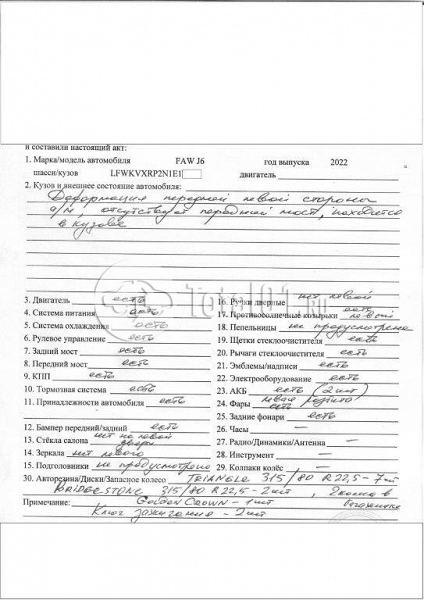 и составили настоящий акт:
1. Марка/модель автомобиля FAW J6 год выпуска 2022
шасси/кузов LFWKVXRP2N1E1 двигатель
2. Кузов и внешнее состояние автомобиля:
Деформация передней левой стороны
а/м, отсутствует передний мост, находится
в кузове
Total01.ru
3. Двигатель есть
4. Система питания есть
5. Система охлаждения есть
6. Рулевое управление есть
7. Задний мост есть
8. Передний мост есть
9. КПП есть
10. Тормозная система есть
11. Принадлежности автомобиля есть
12. Бампер передний/задний есть
13. Стёкла салона нет на левой двери
14. Зеркала нет левого
15. Подголовники не предусмотрено
16. Ручки дверные нет левой
17. Противосолнечные козырьки есть левый
18. Пепельницы не предусмотрено
19. Щетки стеклоочистителя есть
20. Рычаги стеклоочистителя есть
21. Эмблемы/надписи есть
22. Электрооборудование есть
23. АКБ есть (2шт)
24. Фары левая есть
25. Задние фонари есть
26. Часы —
27. Радио/Динамики/Антенна —
28. Инструмент —
29. Колпаки колёс —
30. Авторезина/Диски/Запасное колесо TRIANGLE 315/80 R22,5 - 7шт
BRIDGESTONE 315/80 R22,5 - 2шт, 2 колеса в
Примечание: Golden Crown - 1шт
Ключ зажигания - 2шт